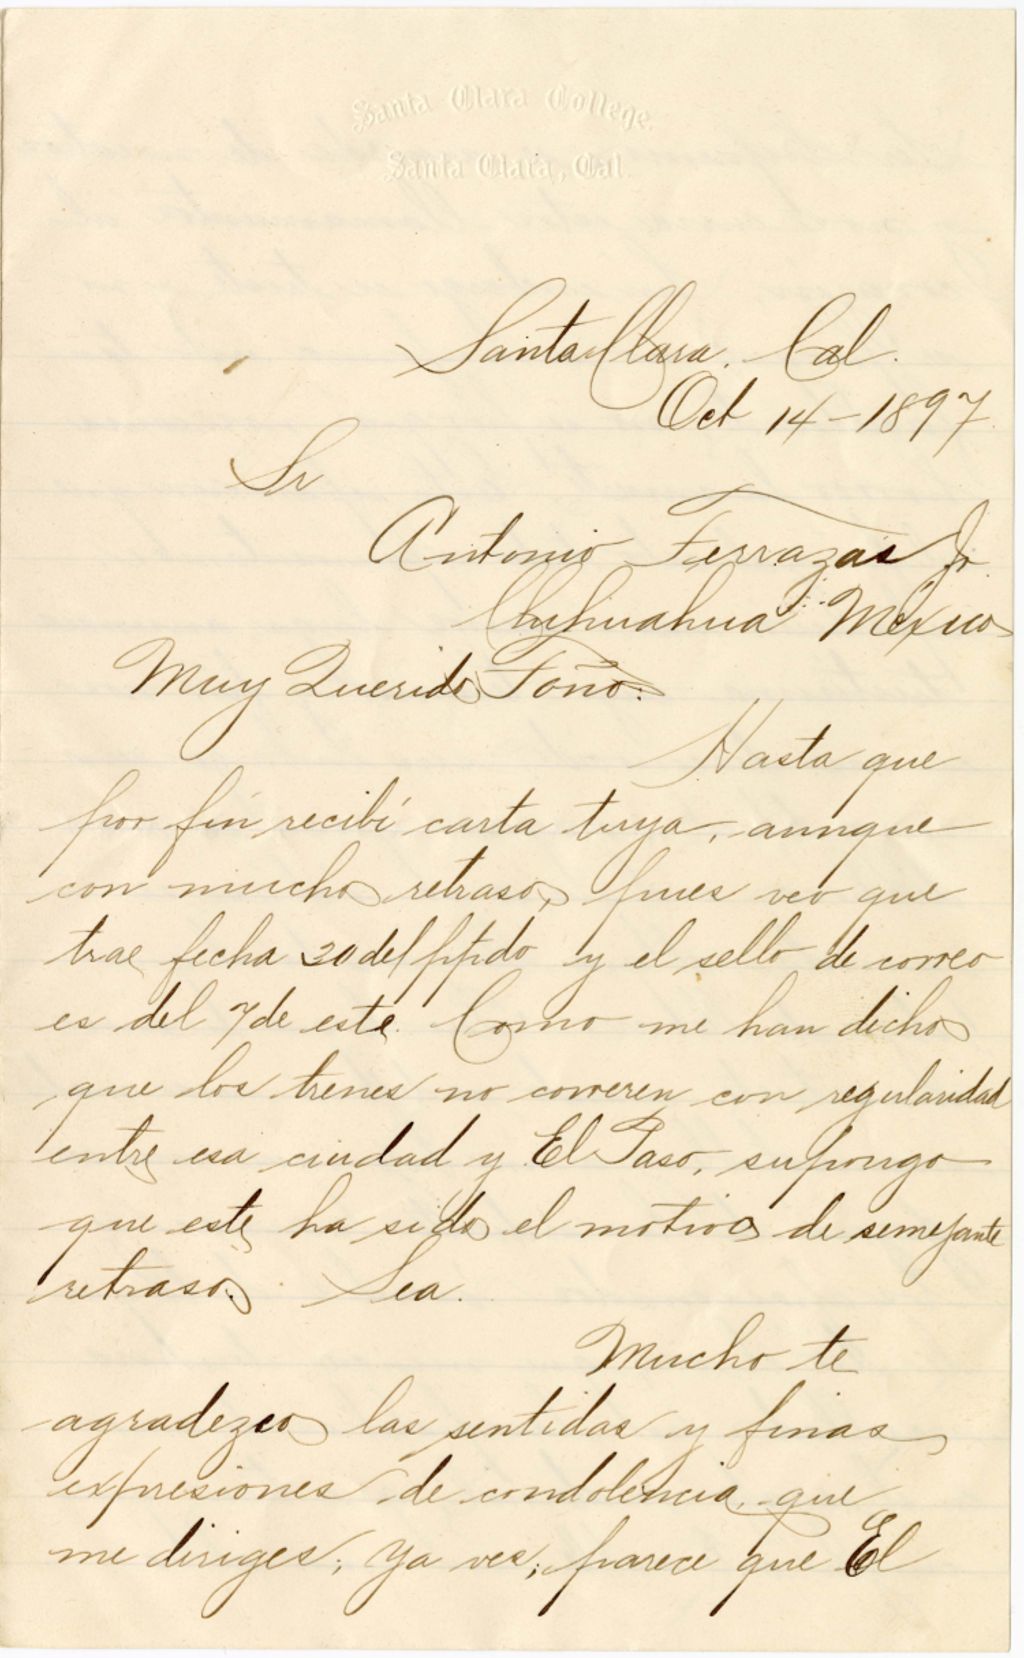 Santa Clara College.
Santa Clara, Cal.
Santa Clara, Cal.
Oct 14-1897
Sr
Antonio Terrazas Jr.
Chihuahua México
Muy Querido Toño:
Hasta que
por fín recibí carta tuya, aunque
con mucho retraso, pues veo que
trae fecha 30 del ppdo y el sello de correo
es del 7 de este. Como me han dicho
que los trenes no correren con regularidad
entre esa ciudad y El Paso, supongo
que este ha sido el motivo de semejante
retraso. Sea.
Mucho te
agradezco las sentidas y finas
expresiones de condolencia, que
me diriges; ya ves; parece que El